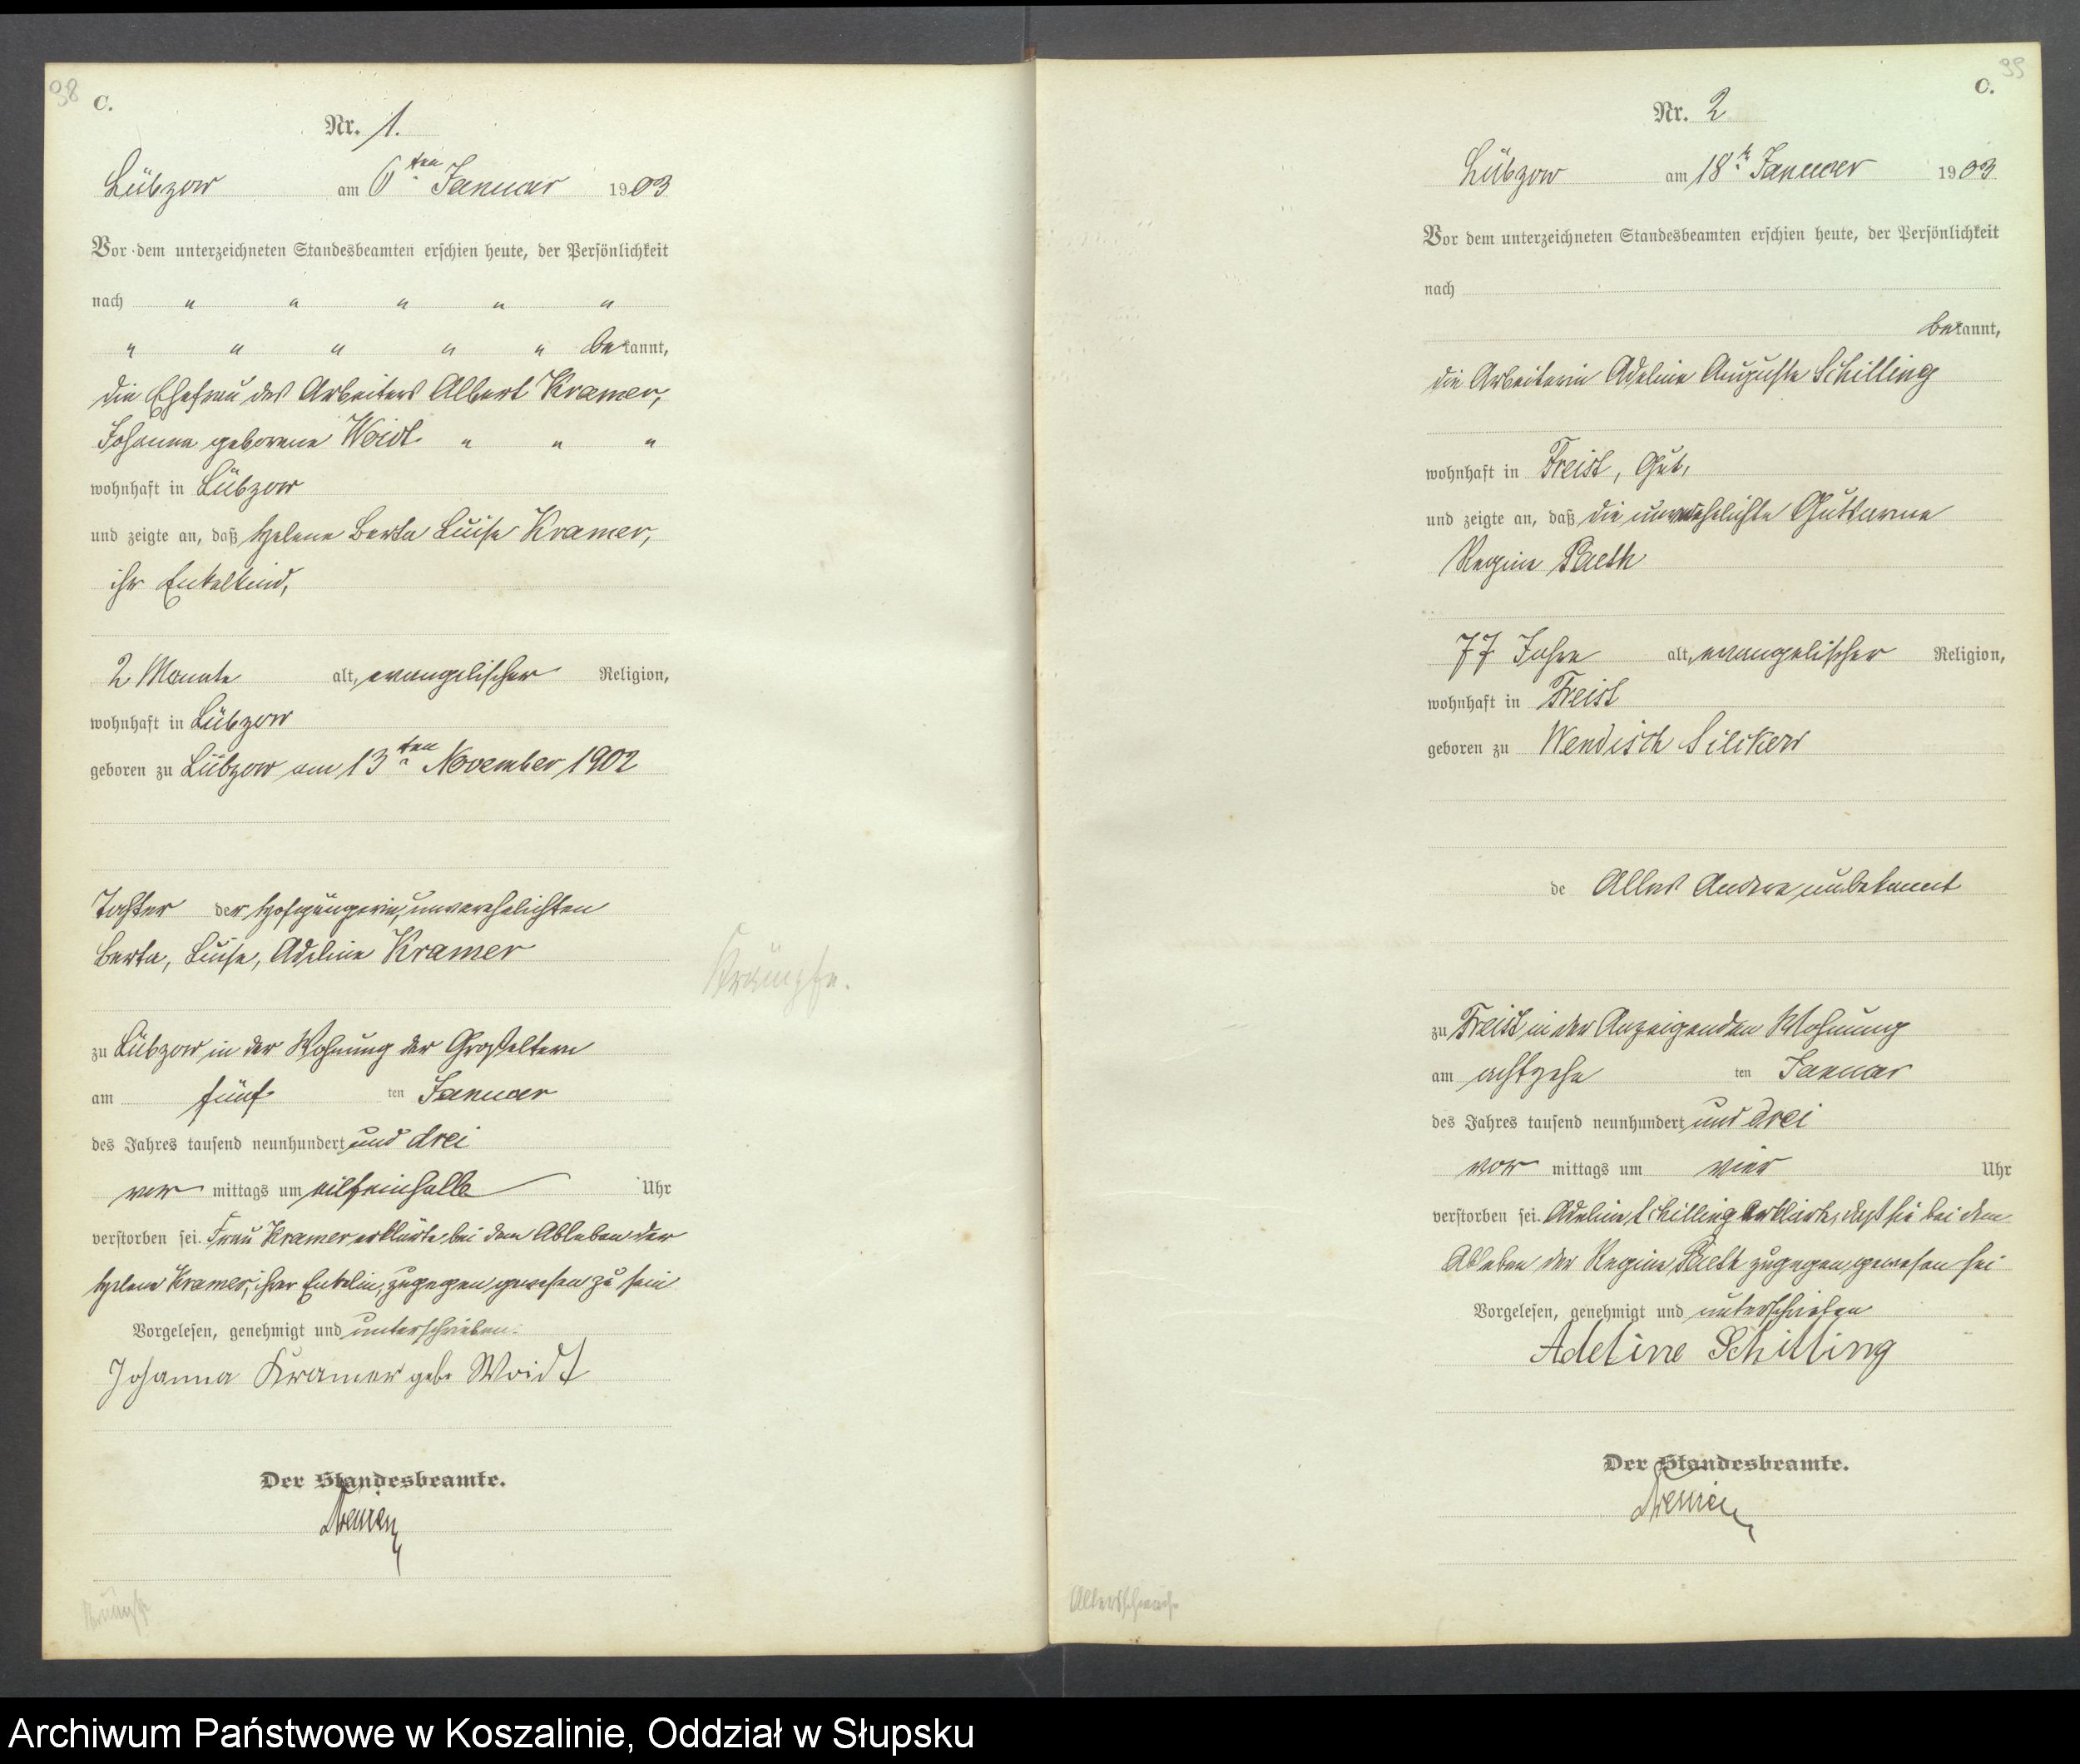 38
C.
Nr. 1.
Lübzow am 6ten Januar 1903
Vor dem unterzeichneten Standesbeamten erschien heute, der Persönlichkeit
nach " " " " "
" " " " " bekannt,
die Ehefrau des Arbeiters Albert Kramer,
Johanna geborene Woidt " " "
wohnhaft in Lübzow
und zeigte an, daß Helene Berta Luise Kramer,
ihr Enkelkind,
2 Monate alt, evangelischer Religion,
wohnhaft in Lübzow
geboren zu Lübzow am 13ten November 1902
Tochter der Hofgängerin, unverehelichten
Berta, Luise, Adeline Kramer
Krämpfe.
zu Lübzow in der Wohnung der Großeltern
am fünf ten Januar
des Jahres tausend neunhundert und drei
vor mittags um eilfeinhalb Uhr
verstorben sei. Frau Kramer erklärte bei dem Ableben der
Helene Kramer, ihrer Enkelin, zugegen gewesen zu sein
Vorgelesen, genehmigt und unterschrieben.
Johanna Kramer geb. Woidt
Der Standesbeamte.
Krämpfe
39
C.
Nr. 2
Lübzow am 18t. Januar 1903
Vor dem unterzeichneten Standesbeamten erschien heute, der Persönlichkeit
nach
bekannt,
die Arbeiterin Adeline Auguste Schilling
wohnhaft in Freist, Gut,
und zeigte an, daß die unverehelichte Gutsarme
Regine Paeth
77 Jahre alt, evangelischer Religion,
wohnhaft in Freist
geboren zu Wendisch Silkow
de Alles Andere unbekannt
zu Freist in der Anzeigenden Wohnung
am achtzehn ten Januar
des Jahres tausend neunhundert und drei
vor mittags um vier Uhr
verstorben sei. Adeline Schilling erklärte, daß sie bei dem
Ableben der Regine Paeth zugegen gewesen sei
Vorgelesen, genehmigt und unterschrieben
Adeline Schilling
Der Standesbeamte.
Altersschwäche
Archiwum Państwowe w Koszalinie, Oddział w Słupsku